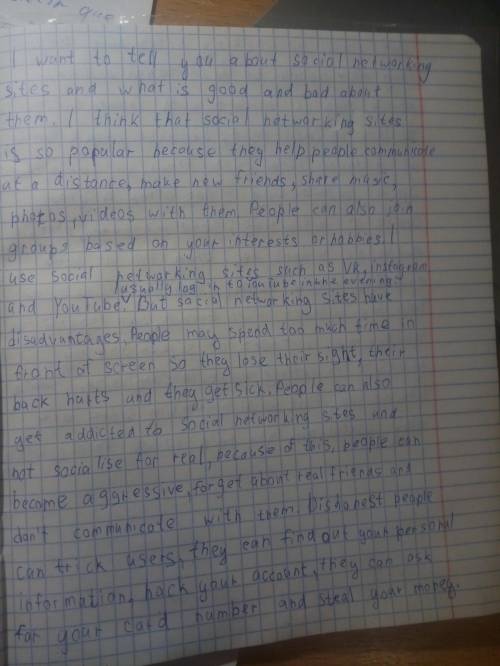 I want to tell you about social networking
sites and what is good and bad about
them. I think that social networking sites
is so popular because they help people communicate
at a distance, make new friends, share music,
photos, videos with them. People can also join
groups based on your interests or hobbies. I
use social networking sites such as VK, instagram
usually log in to YouTube in the evening
and YouTube. But social networking sites have
disadvantages. People may spend too much time in
front of screen so they lose their sight, their
back harts and they get sick. People can also
get addicted to social networking sites and
not socialise for real, because of this, people can
become aggressive, forget about real friends and
don't communicate with them. Dishonest people
can trick users, they can find out your personal
information, hack your account, they can ask
for your card number and steal your money.